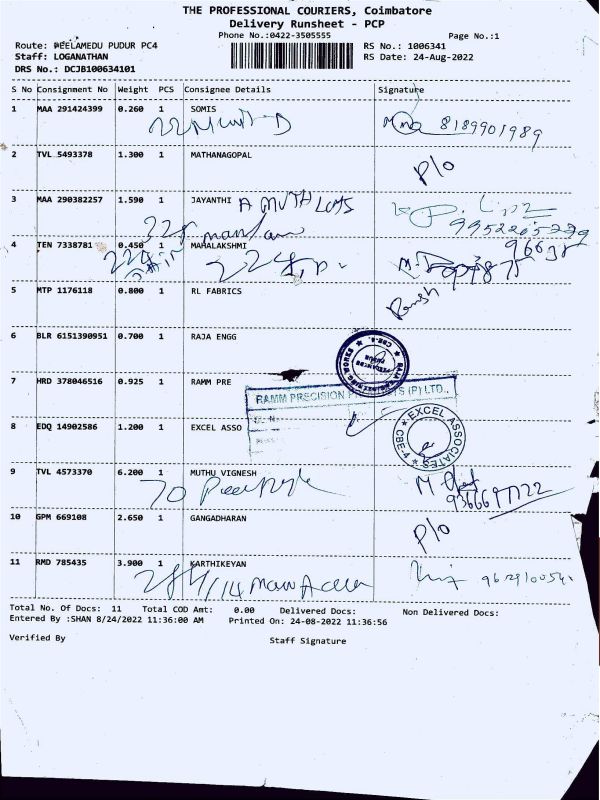 THE PROFESSIONAL COURIERS, Coimbatore
Delivery Runsheet - PCP
Phone No.:0422-3505555
Page No.:1
Route: PEELAMEDU PUDUR PC4
RS No.: 1006341
Staff: LOGANATHAN
RS Date: 24-Aug-2022
DRS No.: DCJB100634101
S No Consignment No Weight PCS Consignee Details Signature
1 MAA 291424399 0.260 1 SOMIS
8189901989
2 TVL 5493378 1.300 1 MATHANAGOPAL
P/o
3 MAA 290382257 1.590 1 JAYANTHI A
4 TEN 7338781 0.450 1 MAHALAKSHMI
5 MTP 1176118 0.800 1 RL FABRICS
6 BLR 6151390951 0.700 1 RAJA ENGG
7 HRD 378046516 0.925 1 RAMM PRE
RAMM PRECISION (P) LTD.,
8 EDQ 14902586 1.200 1 EXCEL ASSO
EXCEL ASSOCIATES CBE-4
9 TVL 4573370 6.200 1 MUTHU VIGNESH
70
10 GPM 669108 2.650 1 GANGADHARAN
P/o
11 RMD 785435 3.900 1 KARTHIKEYAN
Total No. Of Docs: 11 Total COD Amt: 0.00 Delivered Docs: Non Delivered Docs:
Entered By :SHAN 8/24/2022 11:36:00 AM Printed On: 24-08-2022 11:36:56
Verified By Staff Signature